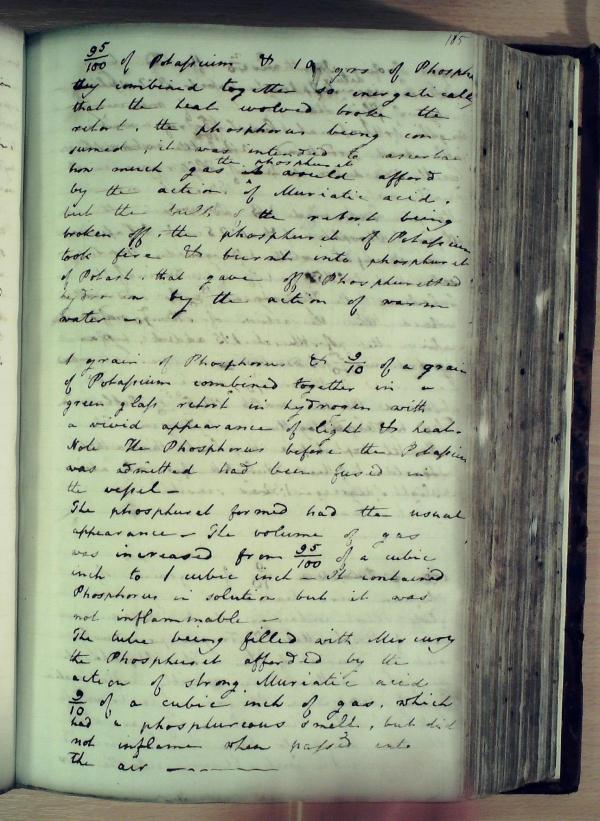 185
95/100 of Potassium & 19 grs of Phosph
they combined together so energetically
that the heat evolved broke the
retort. the phosphorus being con
sumed, it was intended to ascertain
how much gas it the phosphuret would afford
by the action of Muriatic acid.
but the bulb of the retort being
broken off. the phosphuret of Potassium
took fire & burnt into phosphuret
of Potash. that gave off Phosphuretted
hydrogen by the action of warm
water -.
1 grain of Phosphorus & 9/10 of a grain
of Potassium combined together in a
green glass retort in hydrogen with
a vivid appearance of light & heat.
Note The Phosphorus before the Potassium
was admitted had been fused in
the vessel -
The phosphuret formed had the usual
appearance - The volume of gas
was increased from 95/100 of a cubic
inch to 1 cubic inch - It contained
Phosphorus in solution but it was
not inflammable -
The tube being filled with Mercury
the Phosphuret afforded by the
action of strong Muriatic acid
9/10 of a cubic inch of gas. which
had a phosphureous smell, but did
not inflame when passed into
the air -